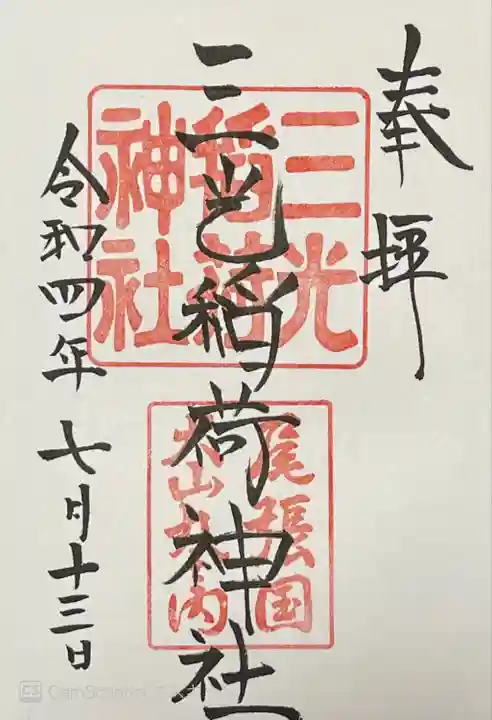 奉拝
三光稲荷神社
令和四年七月十三日
三光
稲荷
神社
尾張国
犬山城内
CS CamScanner